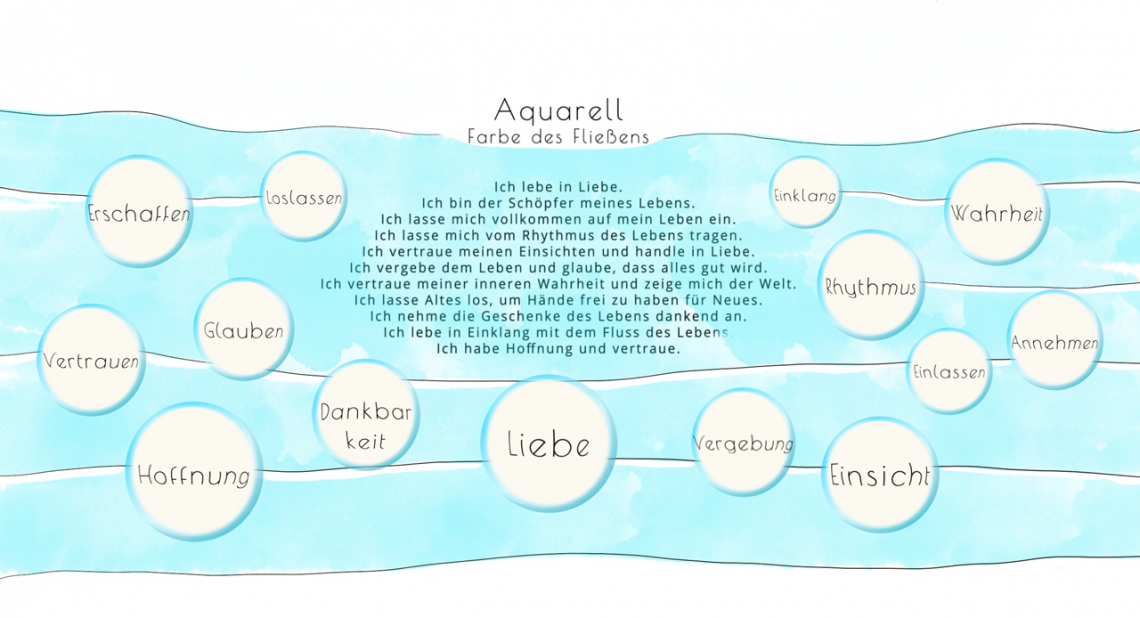 Aquarell
Farbe des Fließens
Ich lebe in Liebe.
Ich bin der Schöpfer meines Lebens.
Ich lasse mich vollkommen auf mein Leben ein.
Ich lasse mich vom Rhythmus des Lebens tragen.
Ich vertraue meinen Einsichten und handle in Liebe.
Ich vergebe dem Leben und glaube, dass alles gut wird.
Ich vertraue meiner inneren Wahrheit und zeige mich der Welt.
Ich lasse Altes los, um Hände frei zu haben für Neues.
Ich nehme die Geschenke des Lebens dankend an.
Ich lebe in Einklang mit dem Fluss des Lebens.
Ich habe Hoffnung und vertraue.
Erschaffen
Loslassen
Einklang
Wahrheit
Rhythmus
Glauben
Vertrauen
Annehmen
Einlassen
Dankbar
keit
Liebe
Vergebung
Hoffnung
Einsicht